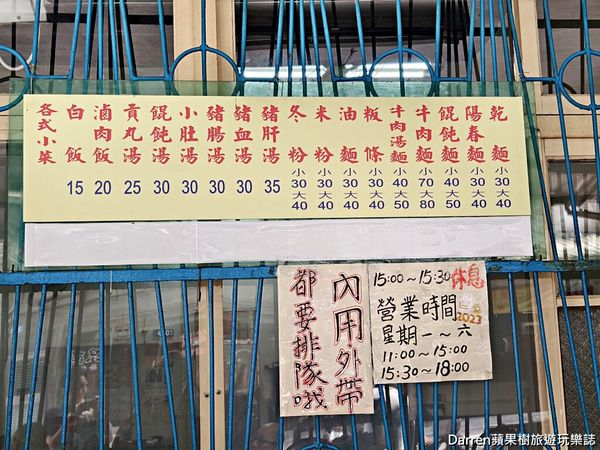 乾麵 小30大40
陽春麵 小30大40
餛飩麵 小40大50
牛肉麵 小70大80
牛肉湯麵 小40大50
粄條 小30大40
油麵 小30大40
米粉 小30大40
冬粉 小30大40
豬肝湯 35
豬血湯 30
豬腸湯 30
小肚湯 30
餛飩湯 30
貢丸湯 25
滷肉飯 20
白飯 15
各式小菜
內用外帶
都要排隊哦
15:00~15:30休息
營業時間
2023
星期一~六
11:00~15:00
15:30~18:00
Darren蘋果樹旅遊玩樂誌